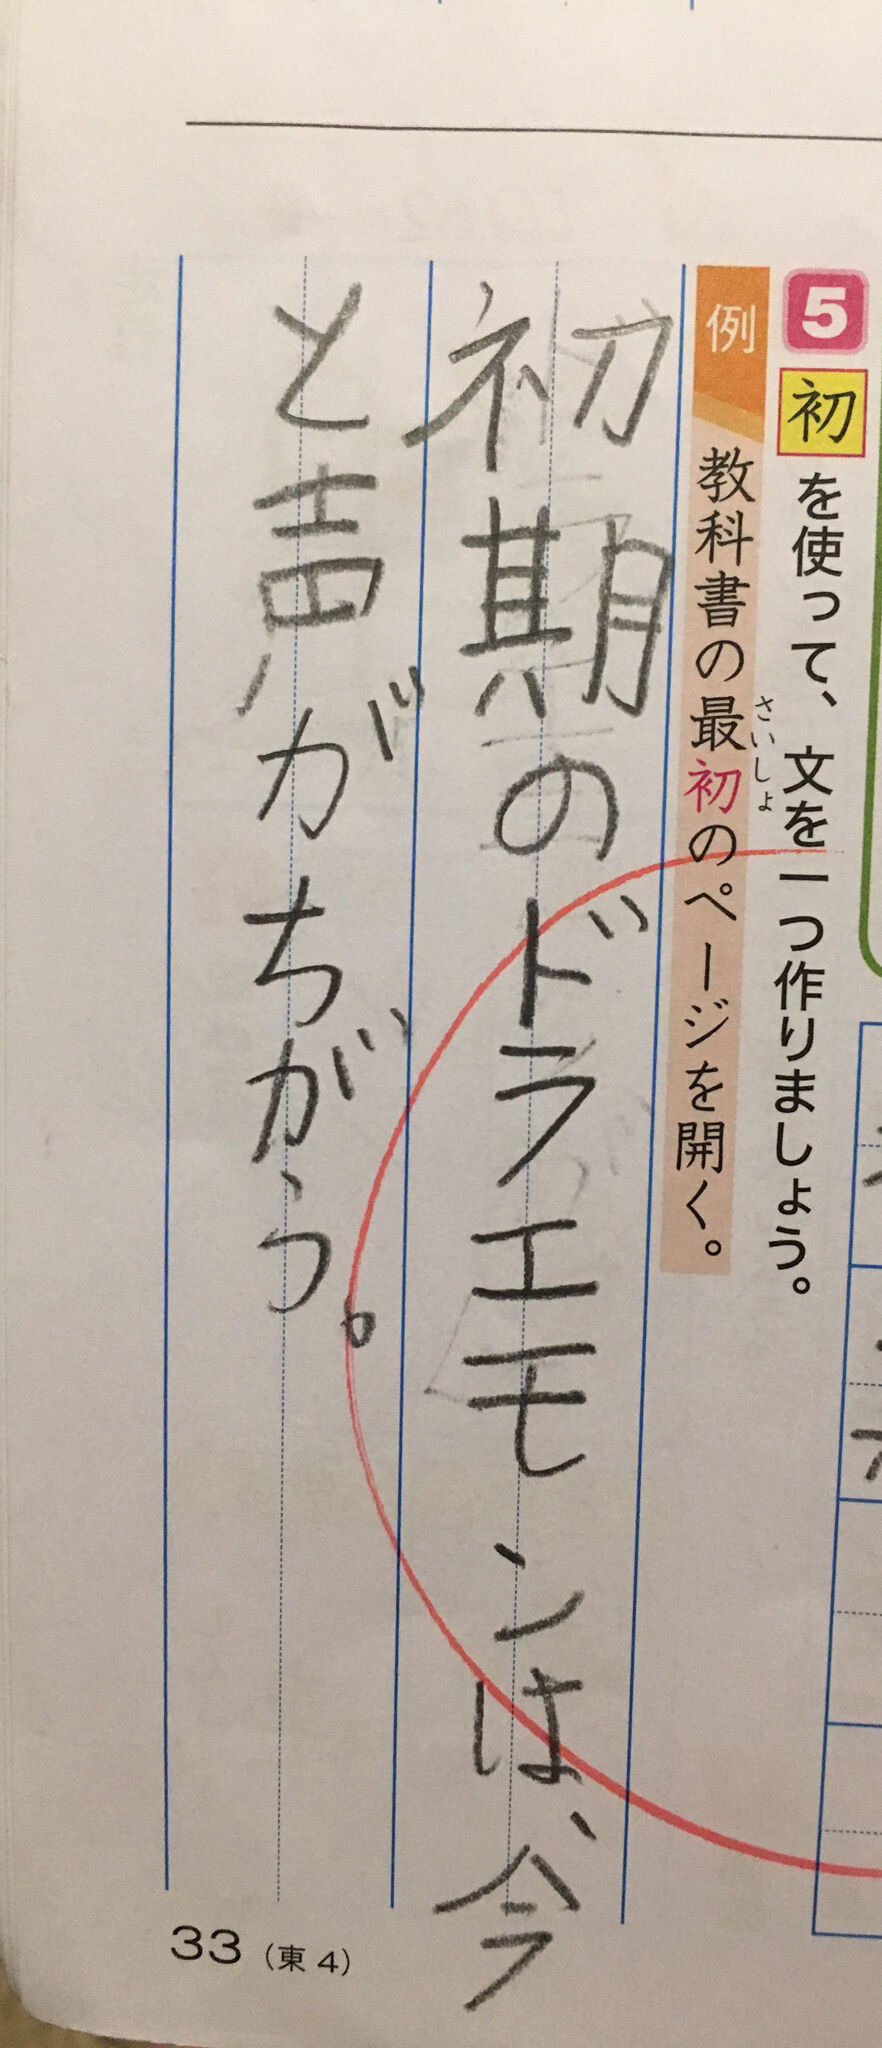 5 初を使って、文を一つ作りましょう。
例 教科書の最初のページを開く。
さいしょ
初期のドラエモンは今
と声がちがう。
33(東4)